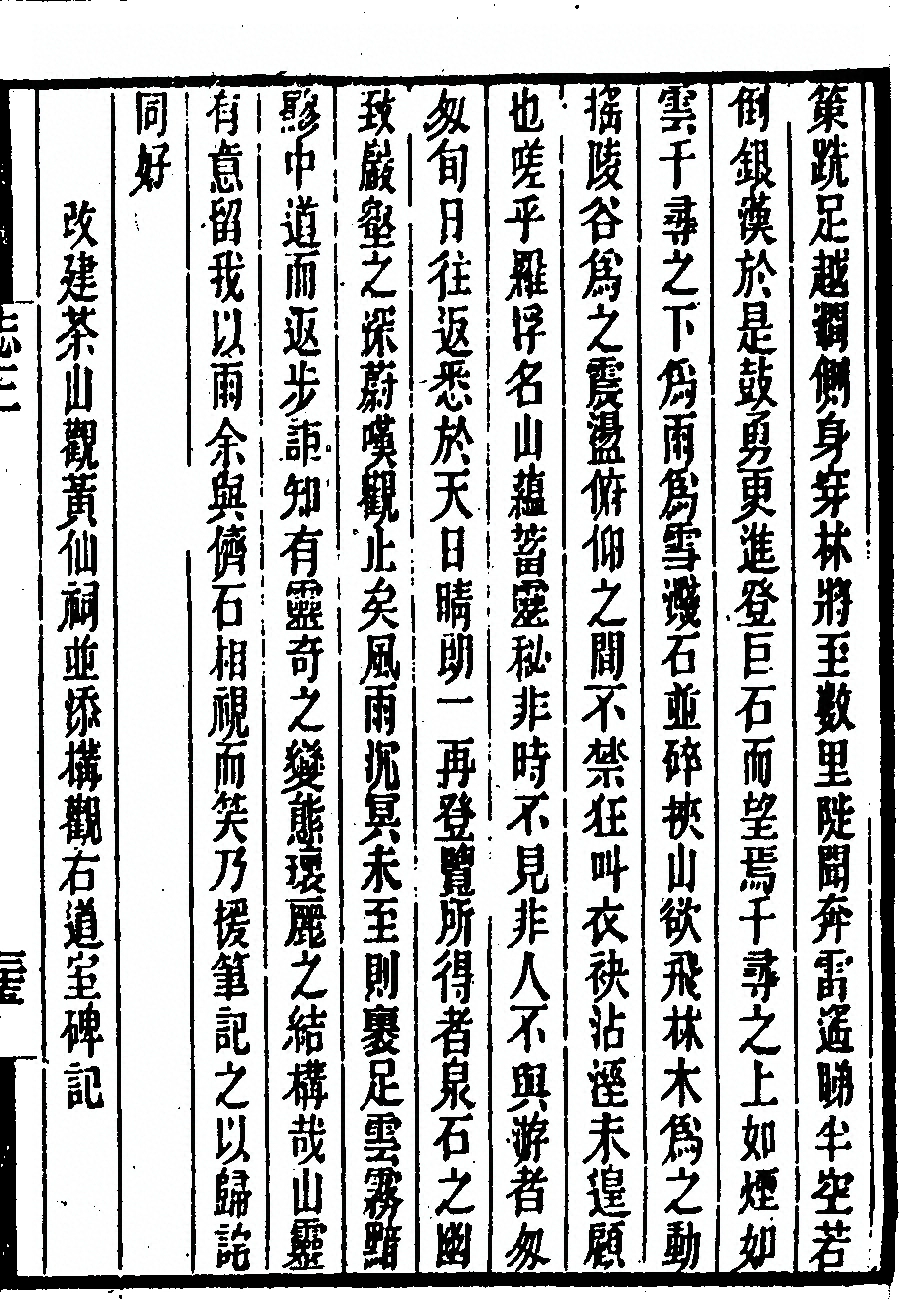 策跣足越澗側身穿林將至數里陡聞奔雷遙睇半空若
倒銀漢於是鼓勇更進登巨石而望焉千尋之上如煙如
雲千尋之下爲雨爲雪濺石並碎挾山欲飛林木爲之動
搖陵谷爲之震盪俯仰之間不禁狂叫衣袂沾溼未遑顧
也嗟乎羅浮名山蘊蓄靈秘非時不見非人不與游者匆
匆旬日往返悉於天日晴朗一再登覽所得者泉石之幽
致巖壑之深蔚嘆觀止矣風雨沉冥未至則裹足雲霧黯
黲中道而返步詎知有靈奇之變態瓌麗之結構哉山靈
有意留我以雨余與儕石相視而笑乃援筆記之以歸詫
同好
改建茶山觀黃仙祠並添構觀右道室碑記
志三